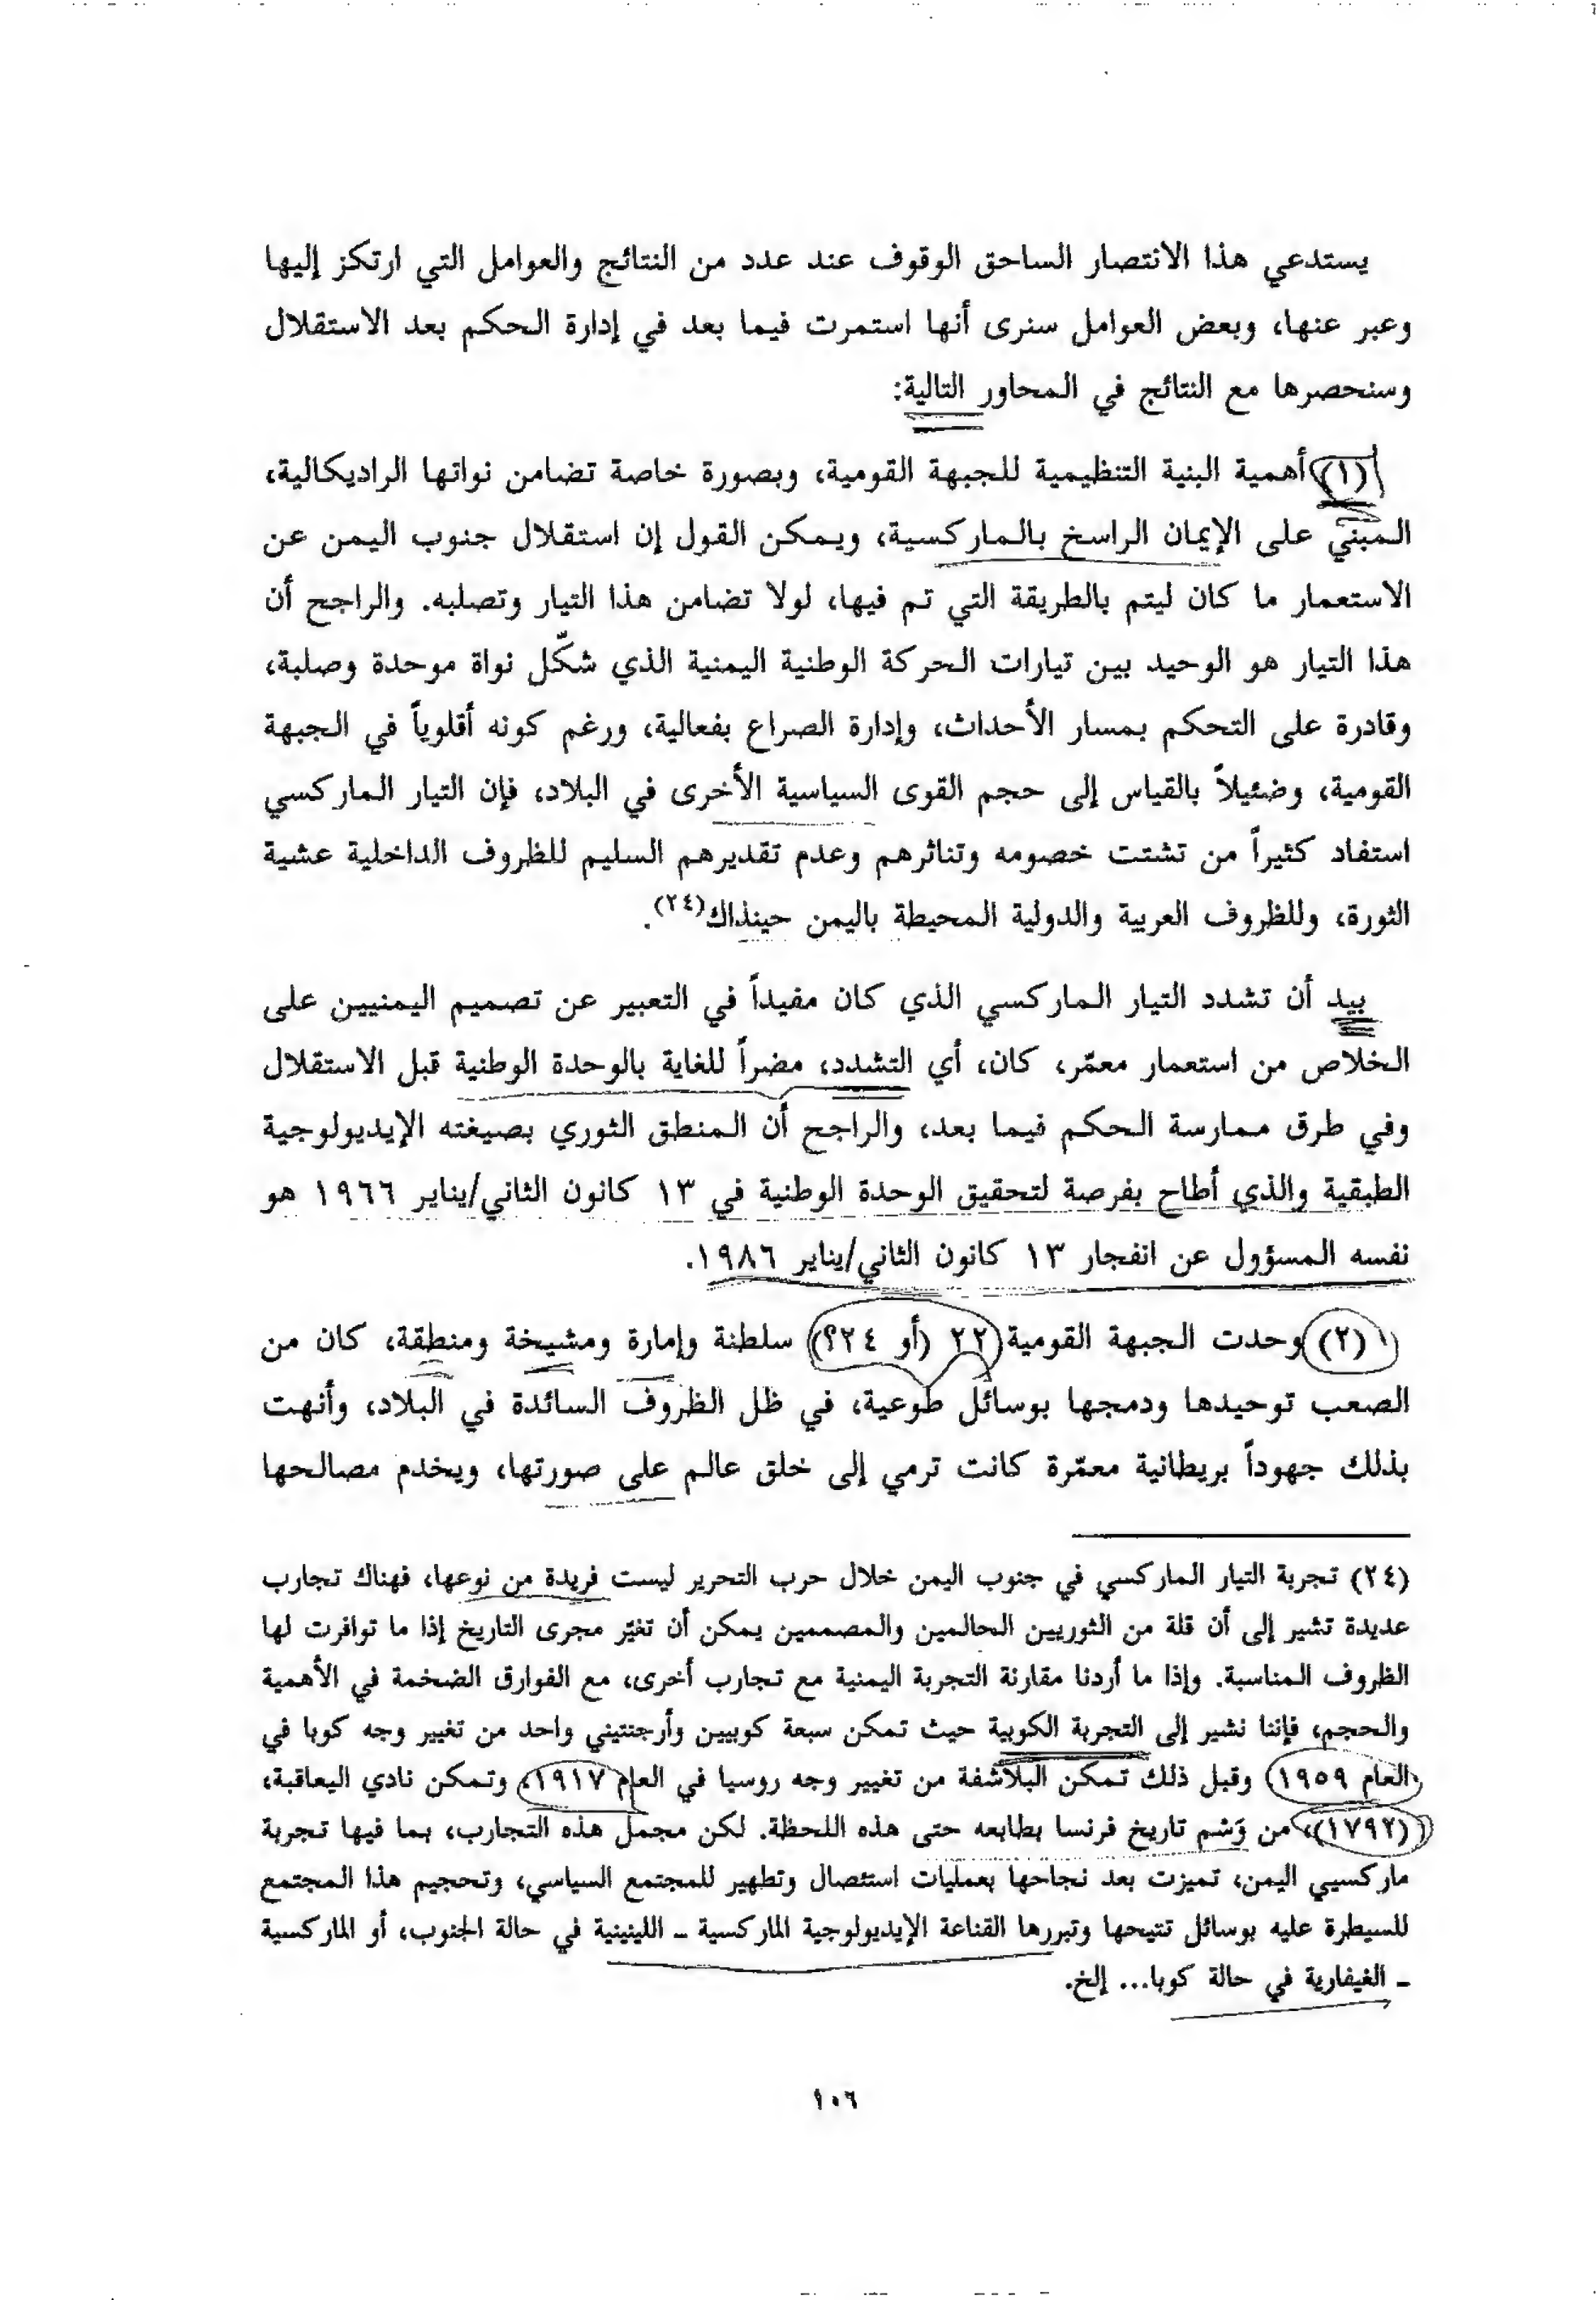 يستدعي هذا الانتصار الساحق الوقوف عند عدد من النتائج والعوامل التي ارتكز إليها
وعبر عنها، وبعض العوامل سنرى أنها استمرت فيما بعد في إدارة الحكم بعد الاستقلال
وسنحصرها مع النتائج في المحاور التالية:
(١) أهمية البنية التنظيمية للجبهة القومية، وبصورة خاصة تضامن نواتها الراديكالية،
المبنيّ على الإيمان الراسخ بالماركسية، ويمكن القول إن استقلال جنوب اليمن عن
الاستعمار ما كان ليتم بالطريقة التي تم فيها، لولا تضامن هذا التيار وتصلبه. والراجح أن
هذا التيار هو الوحيد بين تيارات الحركة الوطنية اليمنية الذي شكّل نواة موحدة وصلبة،
وقادرة على التحكم بمسار الأحداث، وإدارة الصراع بفعالية، ورغم كونه أقلوياً في الجبهة
القومية، وضئيلاً بالقياس إلى حجم القوى السياسية الأخرى في البلاد، فإن التيار الماركسي
استفاد كثيراً من تشتت خصومه وتناثرهم وعدم تقديرهم السليم للظروف الداخلية عشية
الثورة، وللظروف العربية والدولية المحيطة باليمن حينذاك(٢٤).
بيد أن تشدد التيار الماركسي الذي كان مفيداً في التعبير عن تصميم اليمنيين على
الخلاص من استعمار معمّر، كان، أي التشدد، مضراً للغاية بالوحدة الوطنية قبل الاستقلال
وفي طرق ممارسة الحكم فيما بعد، والراجح أن المنطق الثوري بصيغته الإيديولوجية
الطبقية والذي أطاح بفرصة لتحقيق الوحدة الوطنية في ١٣ كانون الثاني/يناير ١٩٦٦ هو
نفسه المسؤول عن انفجار ١٣ كانون الثاني/يناير ١٩٨٦.
(٢) وحدت الجبهة القومية ٢٢ (أو ٢٤؟) سلطنة وإمارة ومشيخة ومنطقة، كان من
الصعب توحيدها ودمجها بوسائل طوعية، في ظل الظروف السائدة في البلاد، وأنهت
بذلك جهوداً بريطانية معمّرة كانت ترمي إلى خلق عالم على صورتها، ويخدم مصالحها
(٢٤) تجربة التيار الماركسي في جنوب اليمن خلال حرب التحرير ليست فريدة من نوعها، فهناك تجارب
عديدة تشير إلى أن قلة من الثوريين الحالمين والمصممين يمكن أن تغيّر مجرى التاريخ إذا ما توافرت لها
الظروف المناسبة. وإذا ما أردنا مقارنة التجربة اليمنية مع تجارب أخرى، مع الفوارق الضخمة في الأهمية
والحجم، فإننا نشير إلى التجربة الكوبية حيث تمكن سبعة كوبيين وأرجنتيني واحد من تغيير وجه كوبا في
العام ١٩٥٩) وقبل ذلك تمكن البلاشفة من تغيير وجه روسيا في العام ١٩١٧، وتمكن نادي اليعاقبة،
(١٧٩٢)، من وَشم تاريخ فرنسا بطابعه حتى هذه اللحظة. لكن مجمل هذه التجارب، بما فيها تجربة
ماركسيي اليمن، تميزت بعد نجاحها بعمليات استئصال وتطهير للمجتمع السياسي، وتحجيم هذا المجتمع
للسيطرة عليه بوسائل تتيحها وتبررها القناعة الإيديولوجية الماركسية ـ اللينينية في حالة الجنوب، أو الماركسية
ـ الغيفارية في حالة كوبا... إلخ.
١٠٦